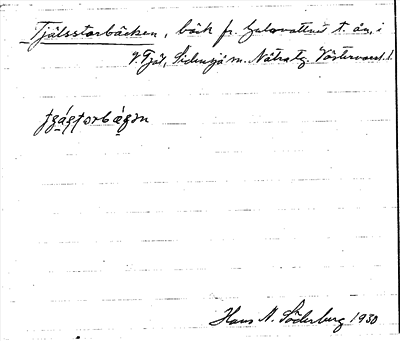 Tjälsstorbäcken, bäck fr. Galasvattnet t. ån, i
V. Tjäl, Sidensjö sn. Nätra tg. Västernorrl. l.
Hans N. Söderberg 1930